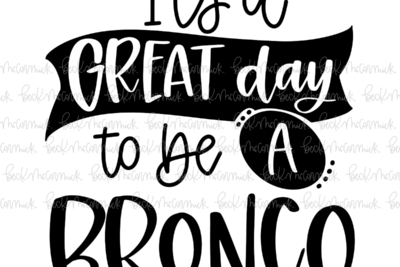 It's a
GREAT day
to be A
BRONCO